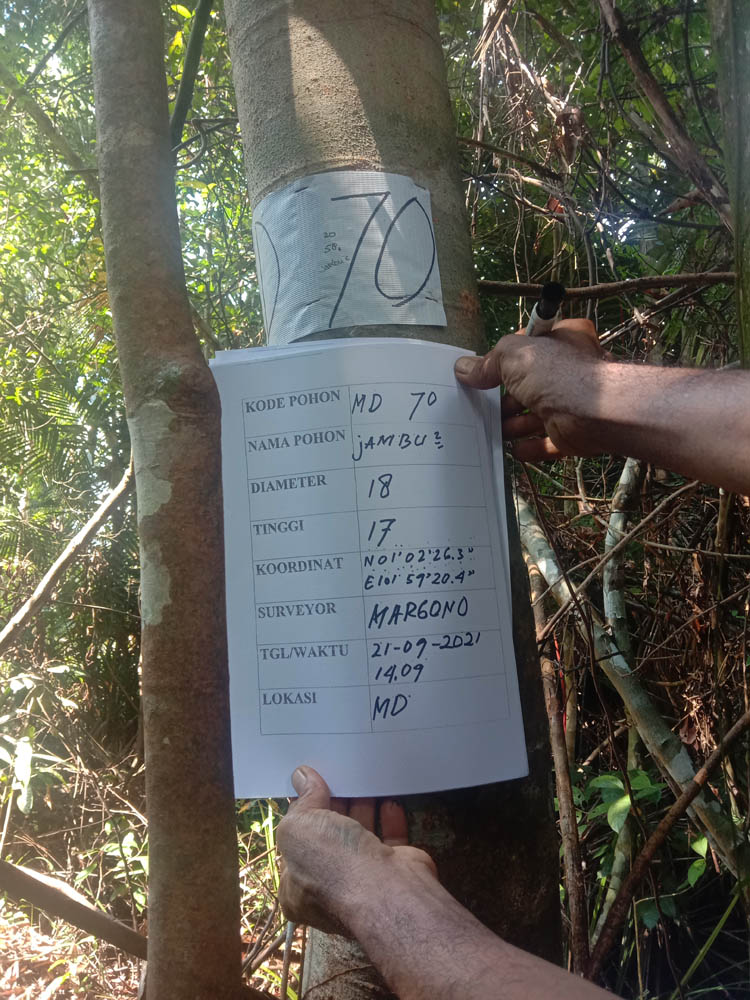 70
20
58
KODE POHON MD 70
NAMA POHON jAMBU 2
DIAMETER 18
TINGGI 17
KOORDINAT N01°02'26.3"
E101°59'20.4"
SURVEYOR MARGONO
TGL/WAKTU 21-09-2021
14.09
LOKASI MD